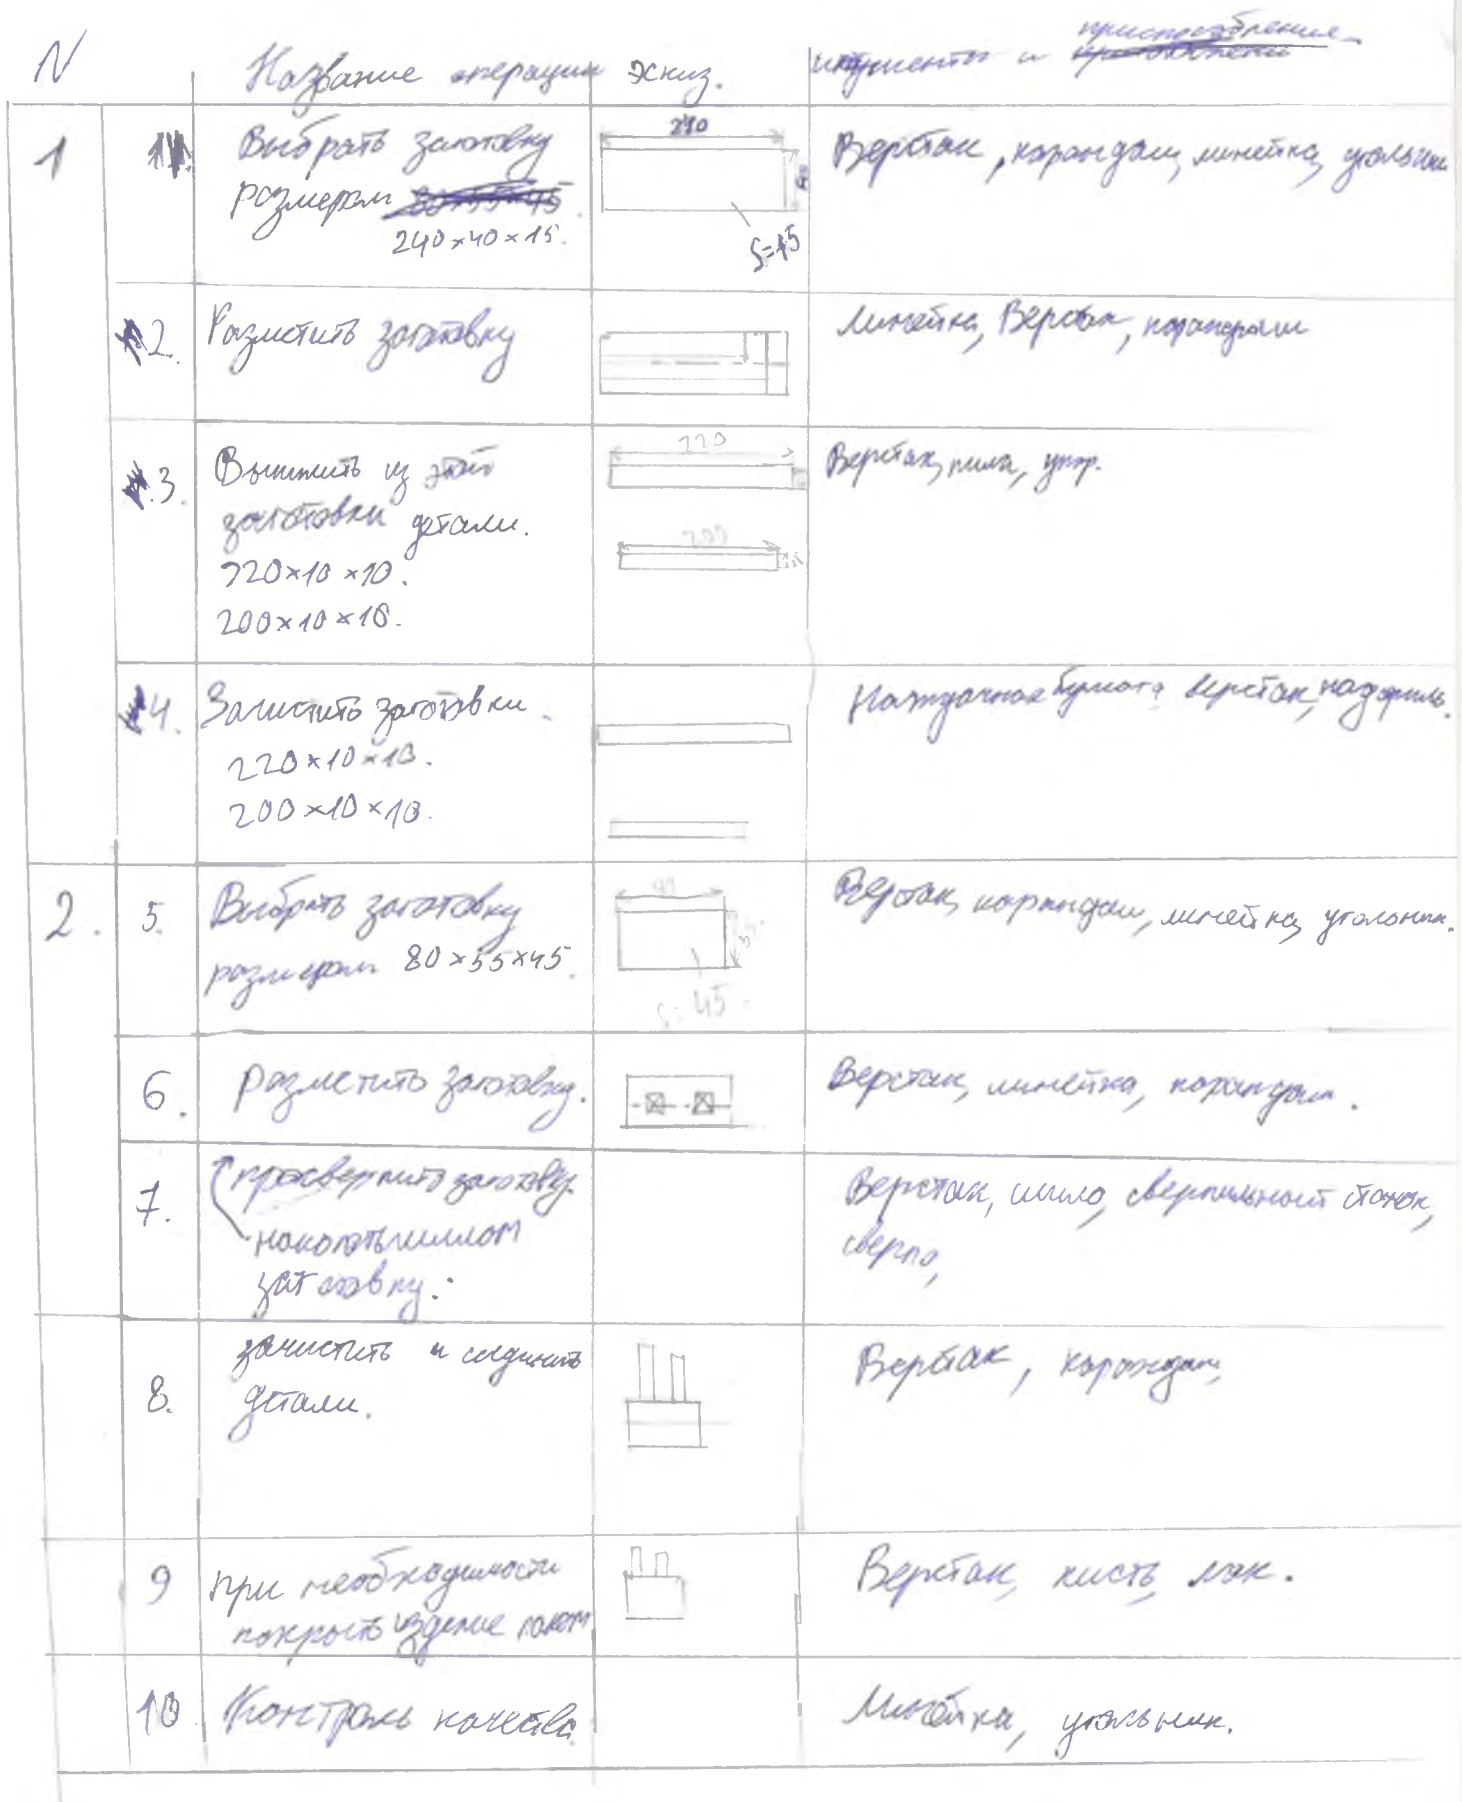 N Название операции эскиз. инструменты и приспособления
1 1. Выбрать заготовку
размером
240×40×15.
240
40
S=15
Верстак, карандаш, линейка, угольник
2. Разметить заготовку
Линейка, Верстак, карандаш
3. Выпилить из этой
заготовки детали.
220×10×10.
200×10×10.
220
200
Верстак, пила, упор.
4. Зачистить заготовки.
220×10×10.
200×10×10.
Наждачная бумага верстак, надфиль.
2. 5. Выбрать заготовку
размером 80×55×45.
S=45
Верстак, карандаш, линейка, угольник.
6. разметить заготовку.
Верстак, линейка, карандаш.
7. просверлить заготовку.
наколоть шилом
заготовку.
Верстак, шило, сверлильный станок,
сверло,
8. зачистить и соединить
детали.
Верстак, карандаш,
9 при необходимости
покрыть изделие лаком
Верстак, кисть, лак.
10 Контроль качества
Линейка, угольник.